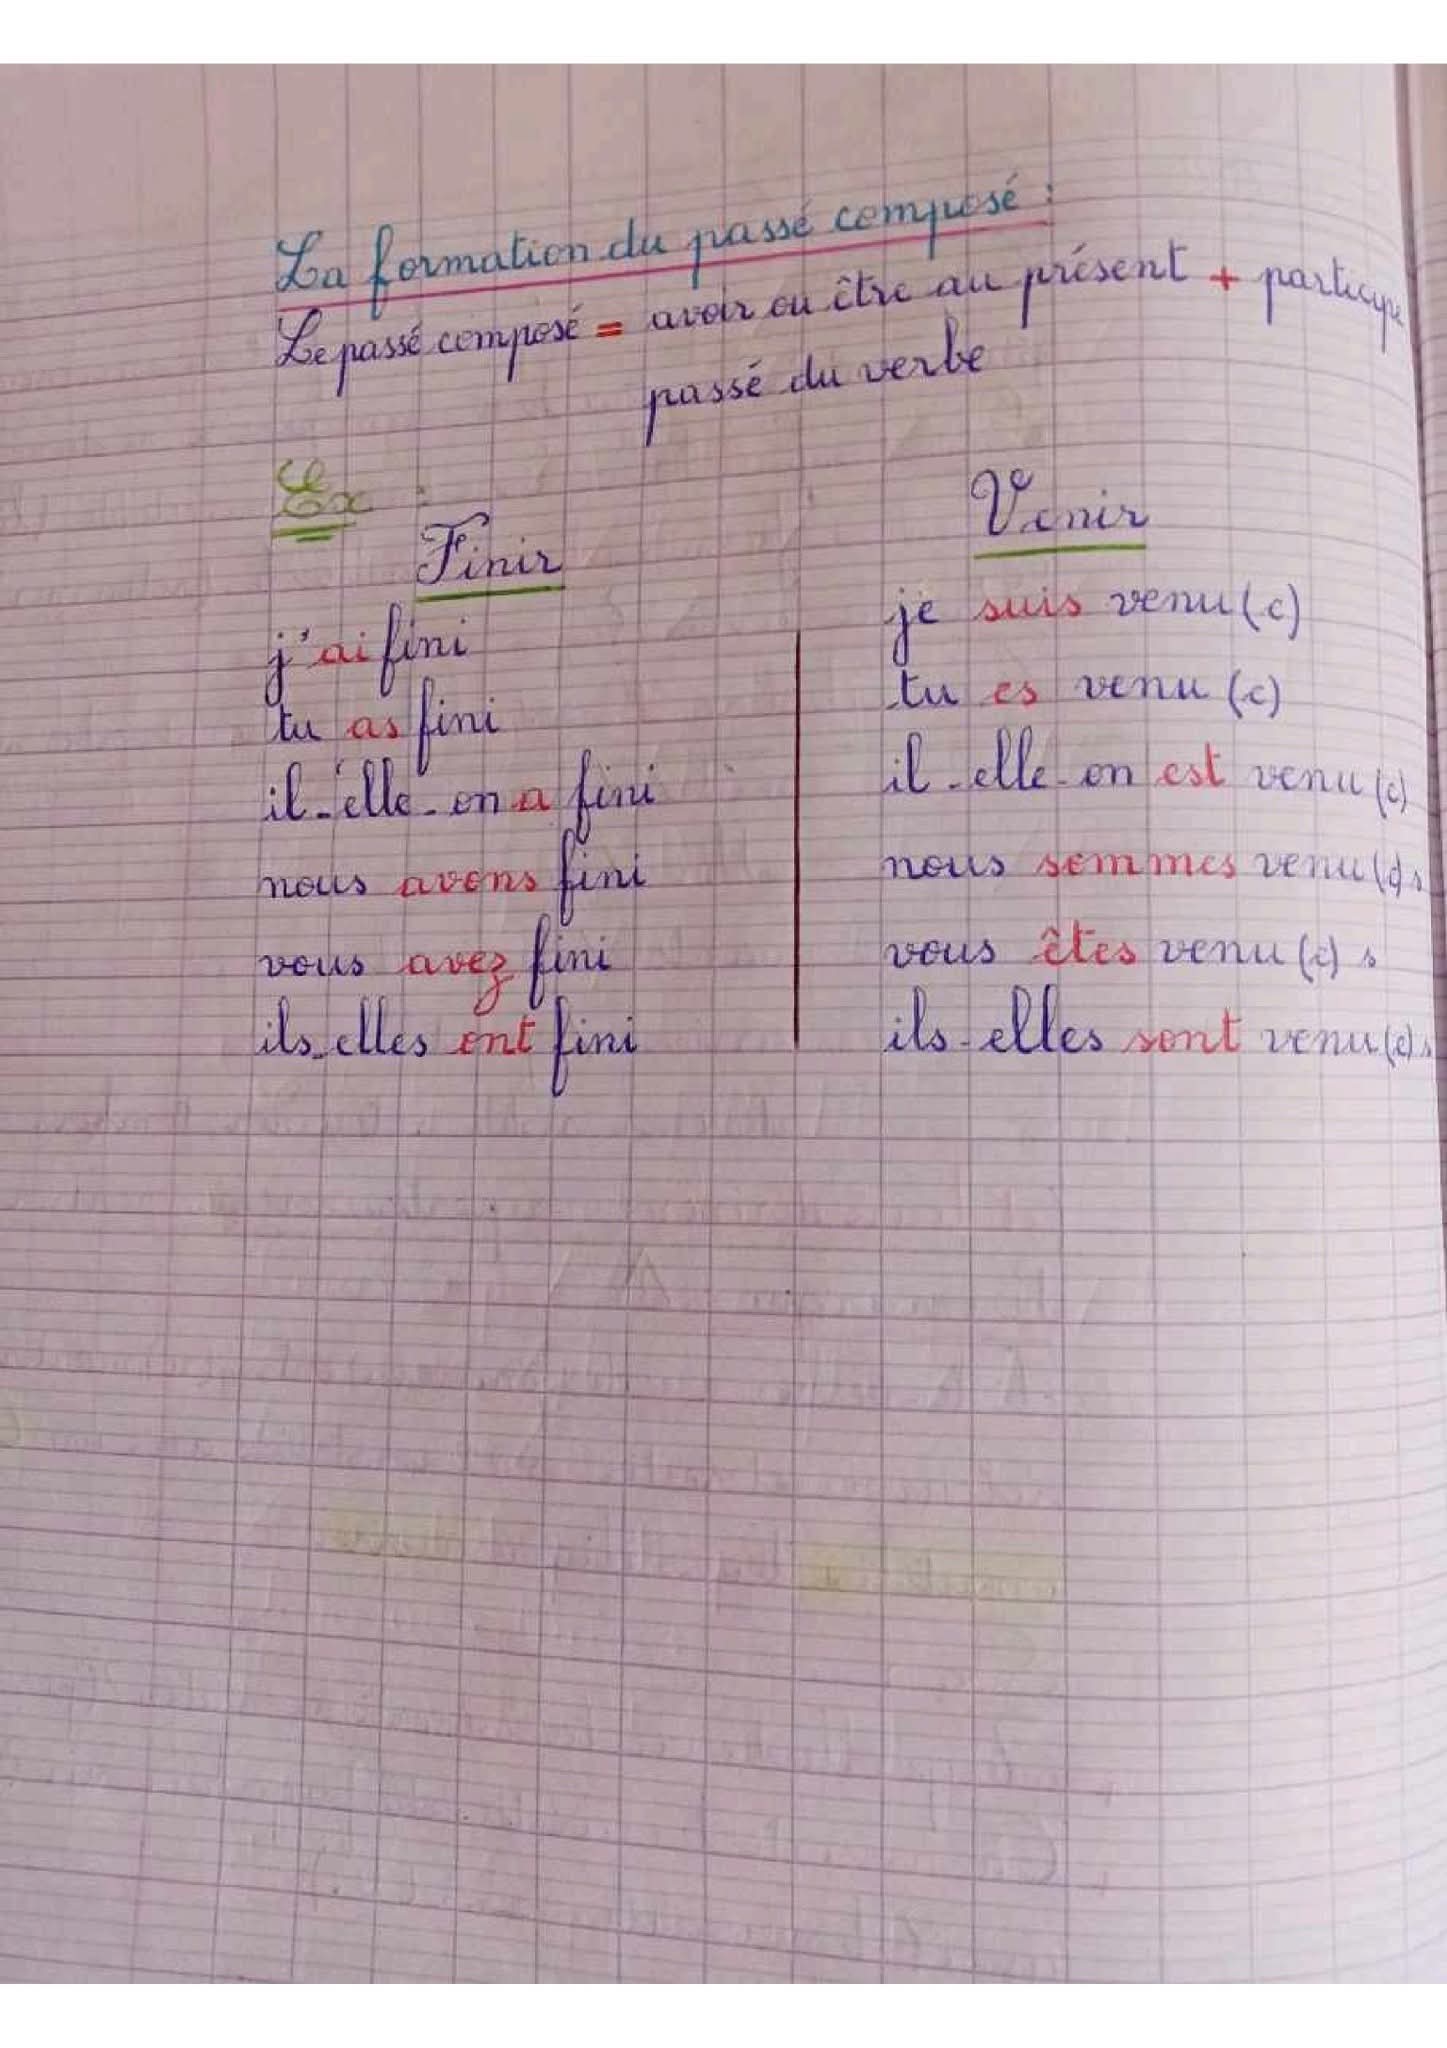 La formation du passé composé :
Le passé composé = avoir ou être au présent + participe
passé du verbe
Ex :
Finir
Venir
j'ai fini
je suis venu(e)
tu as fini
tu es venu (e)
il-elle-on a fini
il-elle-on est venu (e)
nous avons fini
nous sommes venu(e)s
vous avez fini
vous êtes venu (e) s
ils-elles ont fini
ils-elles sont venu(e)s